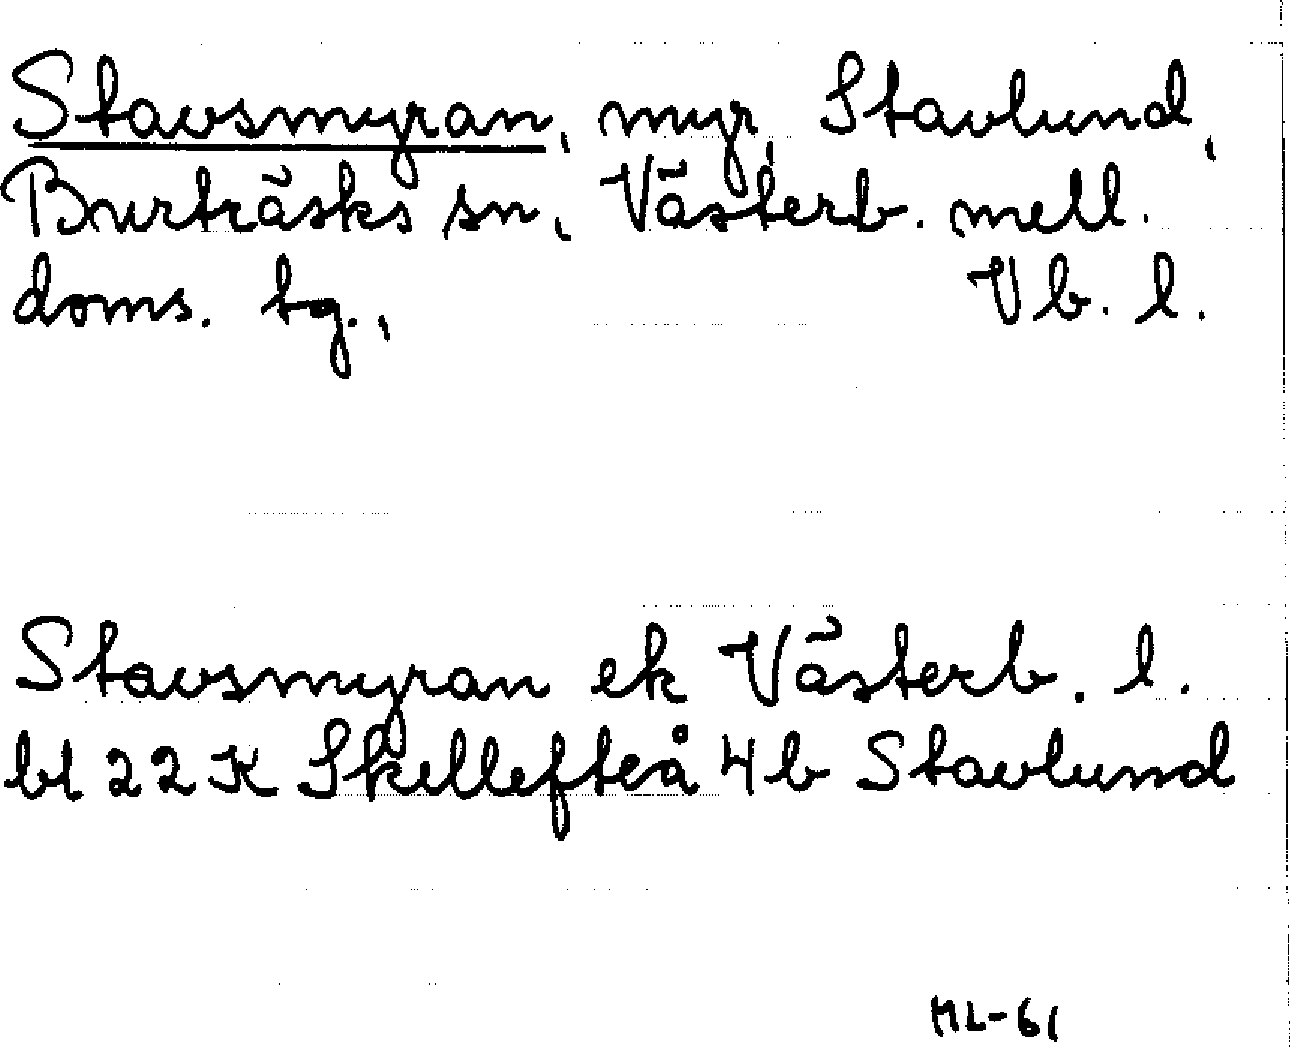 Stavsmyran, myr, Stavlund,
Burträsks sn, Västerb. mell.
doms. tg., Vb. l.
Stavsmyran ek Västerb. l.
bl 22 K Skellefteå 4b Stavlund
ML-61